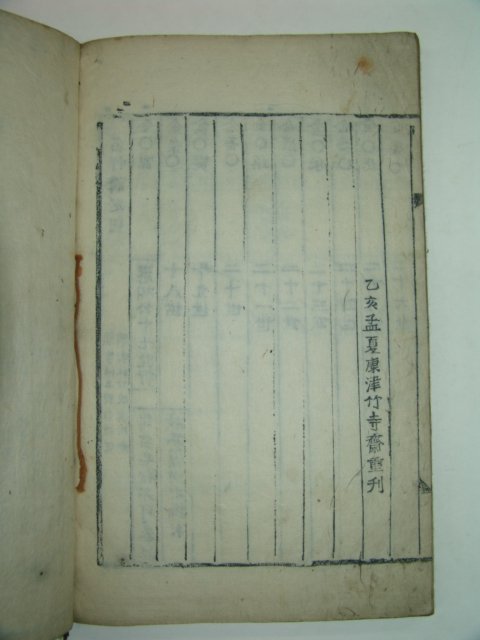 乙亥孟夏康津竹寺齋重刊